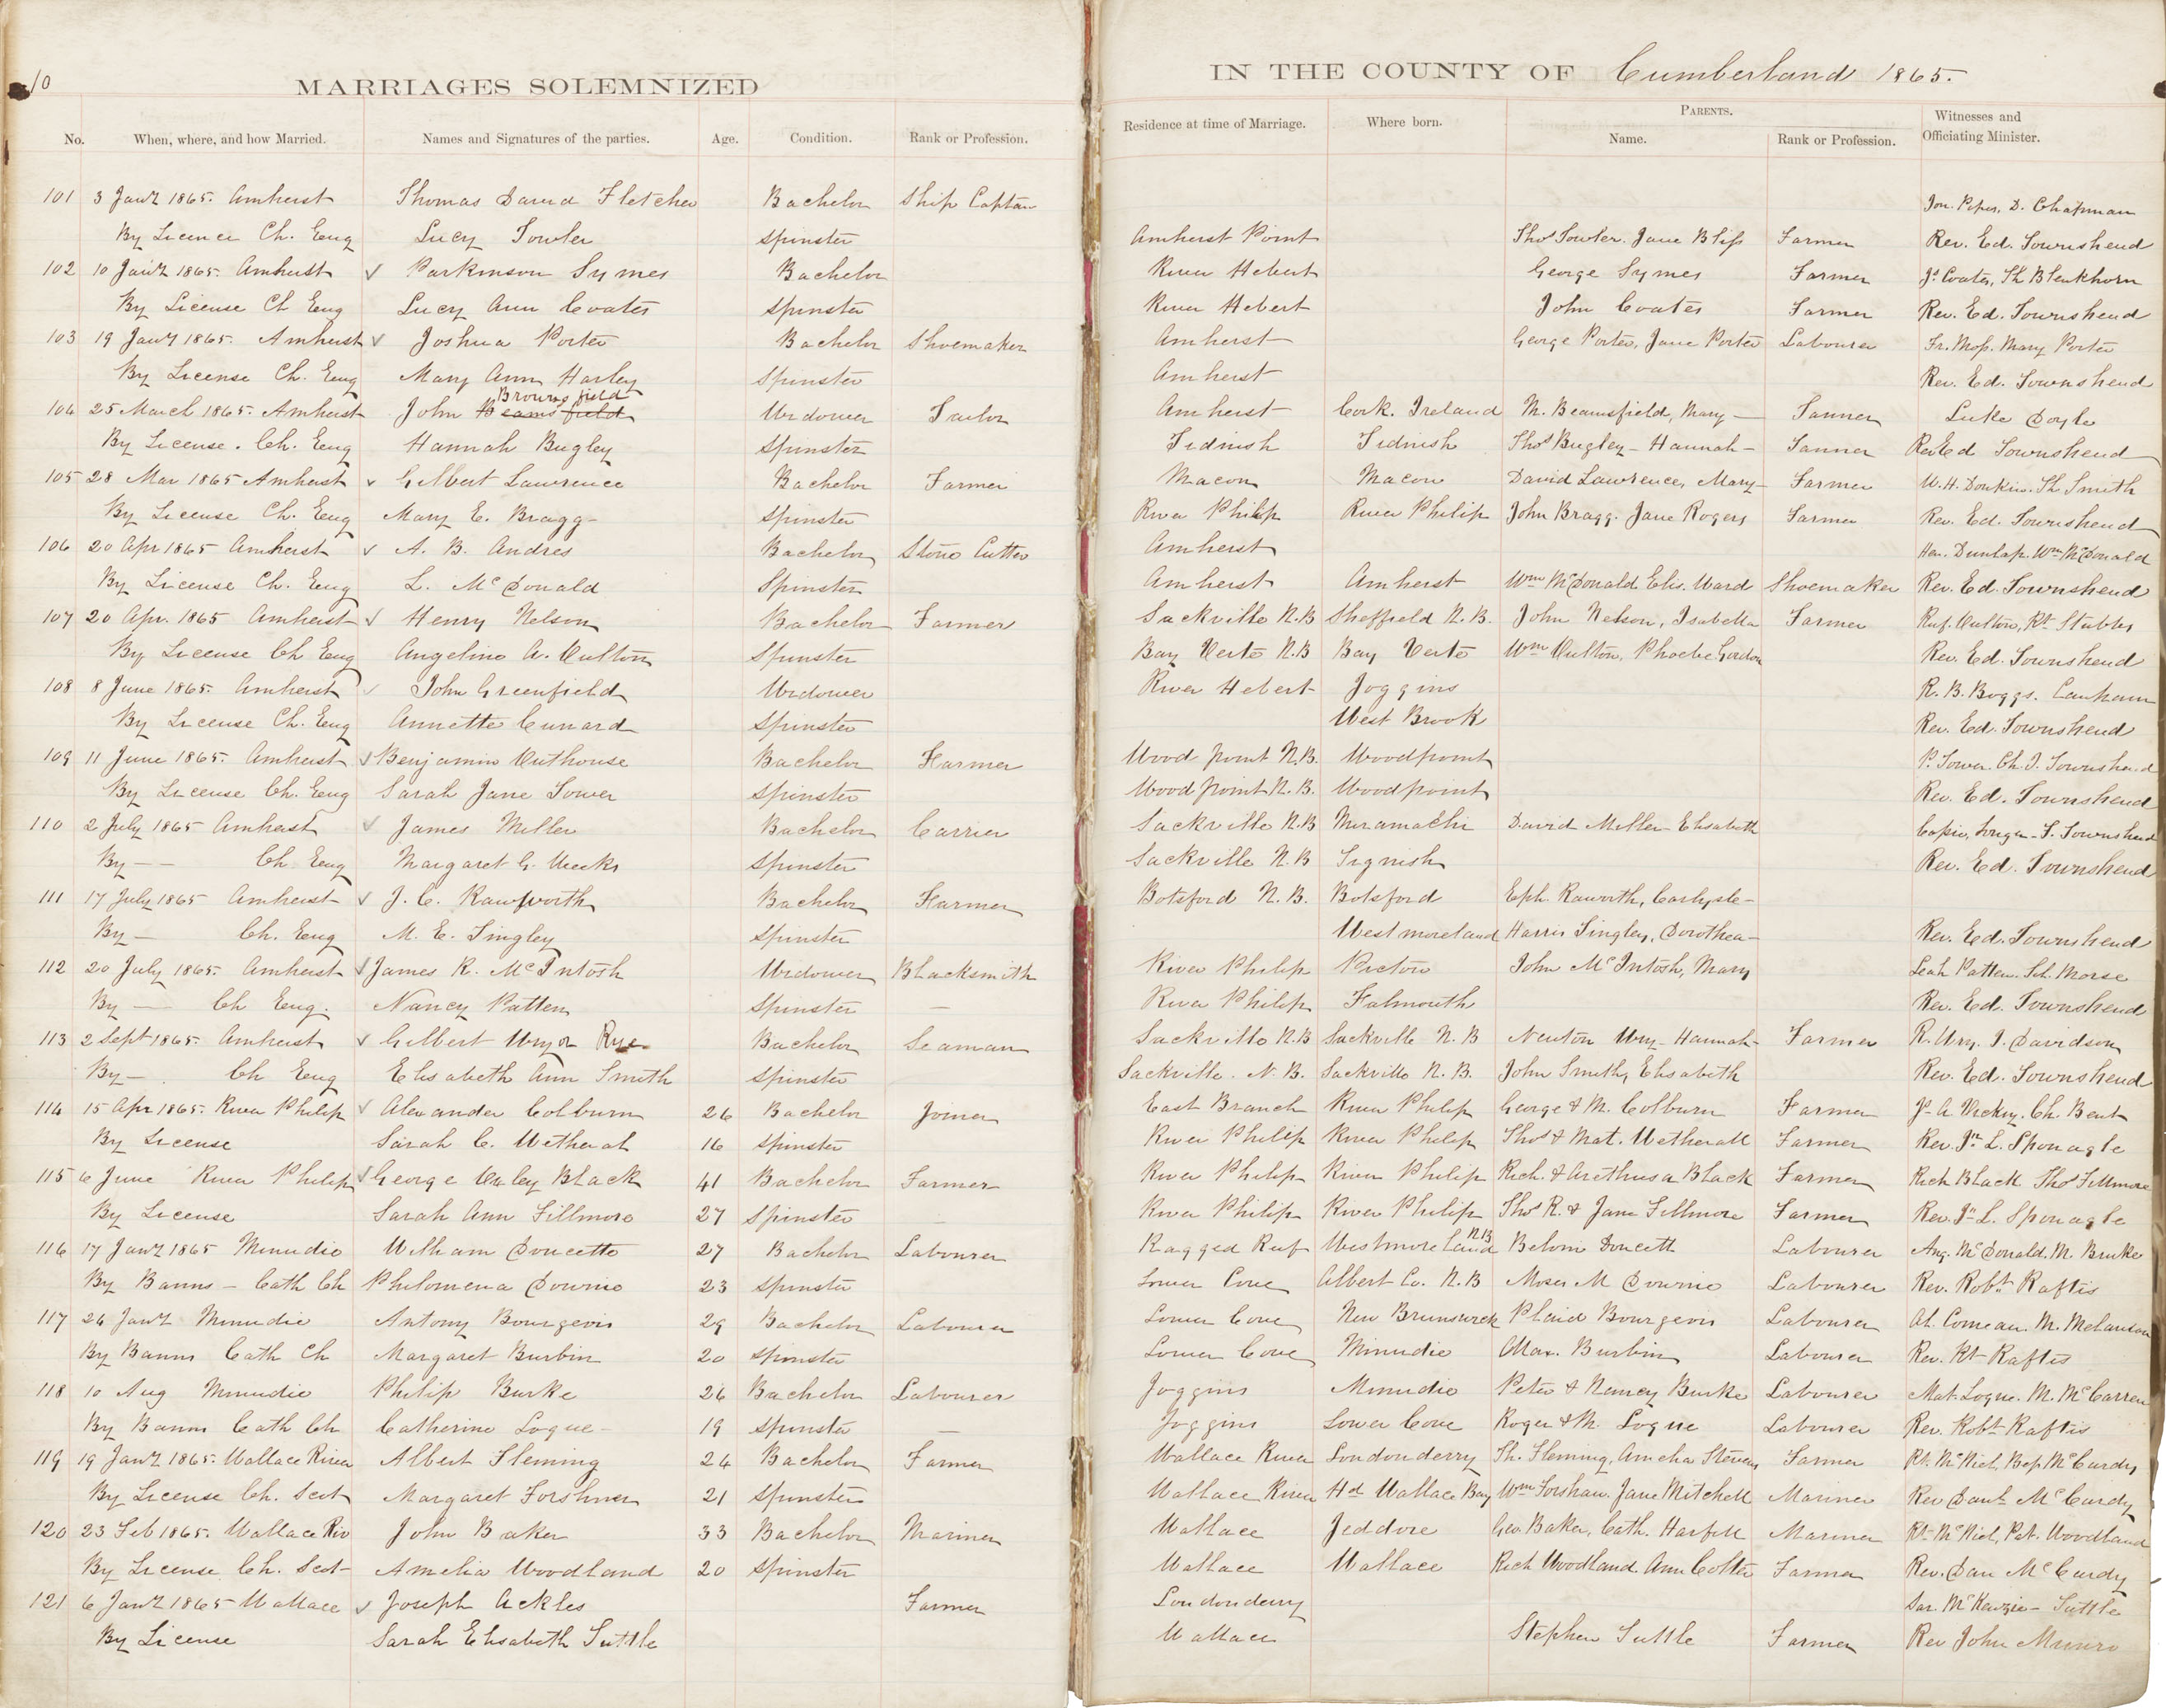 10
MARRIAGES SOLEMNIZED
IN THE COUNTY OF Cumberland 1865.
No. When, where, and how Married. Names and Signatures of the parties. Age. Condition. Rank or Profession. Residence at time of Marriage. Where born. PARENTS. Name. Rank or Profession. Witnesses and Officiating Minister.
101 3 Jany 1865. Amherst Thomas David Fletcher Bachelor Ship Captain Jon. Pipes, D. Chapman
By Licence Ch. Eng Lucy Fowler Spinster Amherst Point Thos Fowler. Jane Bliss Farmer Rev. Ed. Townshend
102 10 Jany 1865. Amherst ✓ Parkinson Symes Bachelor River Hebert George Symes Farmer Js. Coates, Th Blenkhorn
By License Ch Eng Lucy Ann Coates Spinster River Hebert John Coates Farmer Rev. Ed. Townshend
103 19 Jany 1865. Amherst ✓ Joshua Porter Bachelor Shoemaker Amherst George Porter, Jane Porter Labourer Fr. Moss. Mary Porter
By License Ch. Eng Mary Ann Harley Spinster Amherst Rev. Ed. Townshend
Brownsfield
104 25 March 1865. Amherst John Beamsfield Widower Tailor Amherst Cork. Ireland M. Beamsfield, Mary — Tanner Luke Doyle
By License. Ch. Eng Hannah Bugley Spinster Tidnish Tidnish Thos Bugley — Hannah — Tanner Rev Ed Townshend
105 28 Mar 1865 Amherst ✓ Gilbert Lawrence Bachelor Farmer Macon Macon David Lawrence, Mary — Farmer W. H. Donkin. Th Smith
By License Ch. Eng Mary E. Bragg Spinster River Philip River Philip John Bragg. Jane Rogers Farmer Rev. Ed. Townshend
106 20 Apr 1865 Amherst ✓ A. B. Andres Bachelor Stone Cutter Amherst Hen. Dunlap. Wm McDonald
By License Ch. Eng L. McDonald Spinster Amherst Amherst Wm McDonald Elis. Ward Shoemaker Rev. Ed. Townshend
107 20 Apr. 1865 Amherst ✓ Henry Nelson Bachelor Farmer Sackville N.B Sheffield N.B. John Nelson, Isabella Farmer Ruf. Oulton, Rt Stubbs
By License Ch Eng Angeline A. Oulton Spinster Bay Verte N.B Bay Verte Wm Oulton, Phoebe Gordon Rev. Ed. Townshend
108 8 June 1865. Amherst ✓ John Greenfield Widower River Hebert Joggins R. B. Boggs.
By License Ch. Eng Annette Cunard Spinster West Brook Rev. Ed. Townshend
109 11 June 1865. Amherst ✓ Benjamin Outhouse Bachelor Farmer Wood point N.B. Woodpoint P. Tower. Ch. J. Townshend
By License Ch. Eng Sarah Jane Tower Spinster Wood point N.B. Woodpoint Rev. Ed. Townshend
110 2 July 1865 Amherst ✓ James Miller Bachelor Carrier Sackville N.B Miramachi David Miller Elisabeth T. Townshend
By — — Ch. Eng Margaret G. Weeks Spinster Sackville N.B Rev. Ed. Townshend
111 17 July 1865 Amherst ✓ J. C. Rawworth Bachelor Farmer Botsford N.B. Botsford Eph. Raworth,
By — Ch. Eng M. E. Tingley Spinster Westmoreland Harris Tingley, Dorothea — Rev. Ed. Townshend
112 20 July 1865. Amherst ✓ James R. McIntosh Widower Blacksmith River Philip Pictou John McIntosh, Mary Leah Patten. Sil. Morse
By — Ch Eng. Nancy Patten Spinster — River Philip Falmouth Rev. Ed. Townshend
113 2 Sept 1865. Amherst ✓ Gilbert Wry or Rye Bachelor Seaman Sackville N.B Sackville N.B Newton Wry — Hannah — Farmer R. Wry. J. Davidson
By — Ch Eng Elisabeth Ann Smith Spinster Sackville. N.B. Sackville N.B. John Smith, Elisabeth Rev. Ed. Townshend
114 15 Apr 1865. River Philip ✓ Alexander Colburn 26 Bachelor Joiner East Branch River Philip George & M. Colburn Farmer Js A Vickery. Ch. Bent
By License Sarah C. Wetheral 16 Spinster River Philip River Philip Thos & Mat. Wetherall Farmer Rev. Jn L. Sponagle
115 6 June River Philip ✓ George Oxley Black 41 Bachelor Farmer River Philip River Philip Rich & Arethusa Black Farmer Rich Black Thos Fillmore
By License Sarah Ann Fillmore 27 Spinster — River Philip River Philip Thos R. & Jane Fillmore Farmer Rev. Jn L. Sponagle
116 17 Jany 1865 Minudie William Doucette 27 Bachelor Labourer Ragged Reef Westmoreland N.B Belom Doucett Labourer Ang. McDonald. M. Burke
By Banns — Cath Ch Philomena Downie 23 Spinster Lower Cove Albert Co. N.B Moses M Downie Labourer Rev. Robt Raftis
117 24 Jany Minudie Antony Bourgeois 29 Bachelor Labourer Lower Cove New Brunswick Placid Bourgeois Labourer Al. Comeau. M. Melanson
By Banns Cath Ch Margaret Burbin 20 Spinster Lower Cove Minudie Max. Burbin Labourer Rev. Rt Raftis
118 10 Aug Minudie Philip Burke 26 Bachelor Labourer Joggins Minudie Peter & Nancy Burke Labourer Mat. Logue. M. McCarren
By Banns Cath Ch Catherine Logue — 19 Spinster — Joggins Lower Cove Roger & M. Logue Labourer Rev. Robt Raftis
119 19 Jany 1865. Wallace River Albert Fleming 24 Bachelor Farmer Wallace River Londonderry Th. Fleming, Amelia Stevens Farmer Rt. McNiel, McCurdy
By License Ch. Scot Margaret Forshner 21 Spinster Wallace River Hd Wallace Bay Wm Forshaw. Jane Mitchell Mariner Rev Danl. McCurdy
120 23 Feb 1865. Wallace Riv John Baker 33 Bachelor Mariner Wallace Jeddore Geo. Baker, Cath. Harpell Mariner Rt McNiel, Pat. Woodland
By License Ch. Scot Amelia Woodland 20 Spinster Wallace Wallace Rich Woodland. Ann Cotter Farmer Rev. Dan McCurdy
121 6 Jany 1865 Wallace ✓ Joseph Ackles Farmer Londonderry Sar. McKenzie — Tuttle
By License Sarah Elisabeth Tuttle Wallace Stephen Tuttle Farmer Rev John Munro